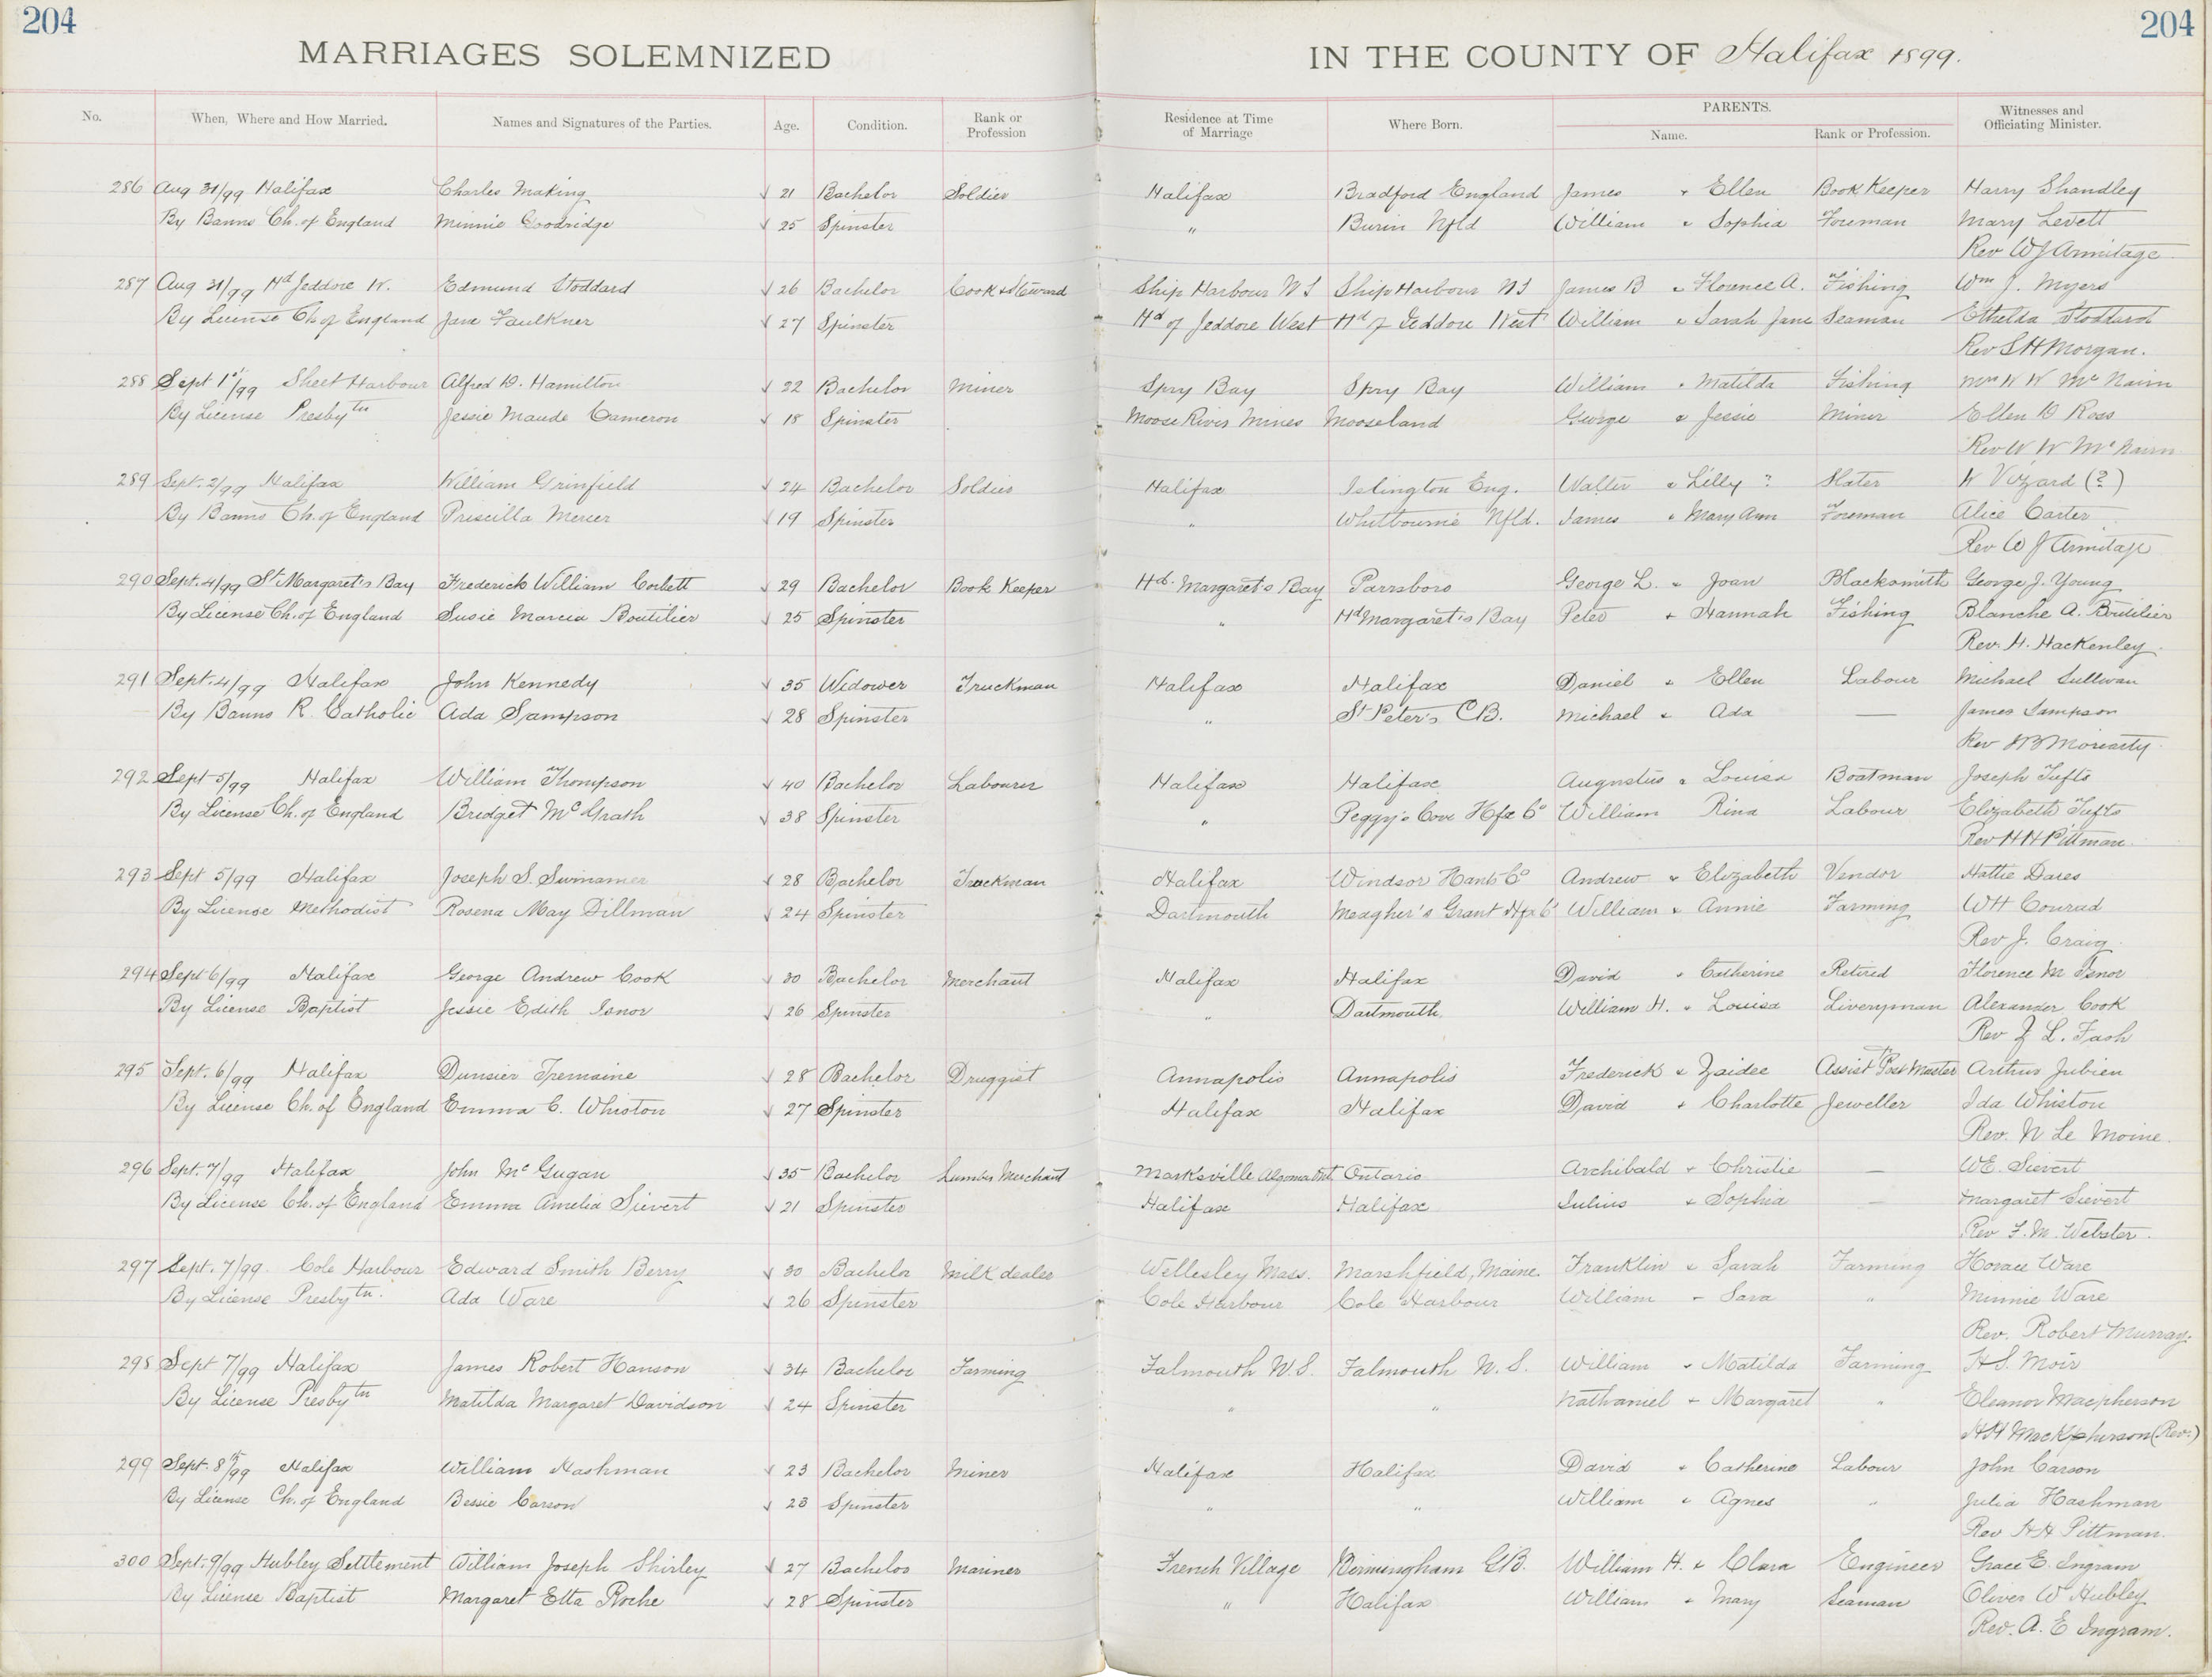 204
204
MARRIAGES SOLEMNIZED IN THE COUNTY OF Halifax 1899.
No. When, Where and How Married. Names and Signatures of the Parties. Age. Condition. Rank or Profession Residence at Time of Marriage Where Born. PARENTS. Name. Rank or Profession. Witnesses and Officiating Minister.
286 Aug 31/99 Halifax Charles Making √ 21 Bachelor Soldier Halifax Bradford England James + Ellen Book Keeper Harry Shandley
By Banns Ch. of England Minnie Goodridge √ 25 Spinster " Burin Nfld William + Sophia Foreman Mary Levett
Rev W J Armitage
287 Aug 31/99 Hd Jeddore W. Edmund Stoddard √ 26 Bachelor Cook & Steward Ship Harbour NS Ship Harbour NS James B + Florence A. Fishing Wm J. Myers
By License Ch of England Jane Faulkner √ 27 Spinster Hd of Jeddore West Hd of Jeddore West William + Sarah Jane Seaman Ethelda Stoddard
Rev S H Morgan.
288 Sept 1st/99 Sheet Harbour Alfred D. Hamilton √ 22 Bachelor Miner Spry Bay Spry Bay William + Matilda Fishing Mrs W W McNairn
By License Presbytn Jessie Maude Cameron √ 18 Spinster Moose River Mines Mooseland George + Jessie Miner Ellen D Ross
Rev W W McNairn
289 Sept. 2/99 Halifax William Grinfield √ 24 Bachelor Soldier Halifax Islington Eng. Walter + Lilly ? Slater W Vizard (?)
By Banns Ch. of England Priscilla Mercer √ 19 Spinster " Whitbourne Nfld. James + Mary Ann Foreman Alice Carter
Rev W J Armitage
290 Sept. 4/99 St Margaret's Bay Frederick William Corbett √ 29 Bachelor Book Keeper Hd. Margaret's Bay Parrsboro George L. + Joan Blacksmith George J. Young
By License Ch. of England Susie Marcia Boutilier √ 25 Spinster " Hd Margaret's Bay Peter + Hannah Fishing Blanche A. Boutilier
Rev. H. Hackenley.
291 Sept. 4/99 Halifax John Kennedy √ 35 Widower Truckman Halifax Halifax Daniel + Ellen Labour Michael Sullivan
By Banns R. Catholic Ada Sampson √ 28 Spinster " St Peter's CB. Michael + Ada — James Sampson
Rev J B Moriarty.
292 Sept 5/99 Halifax William Thompson √ 40 Bachelor Labourer Halifax Halifax Augustus + Louisa Boatman Joseph Tufts
By License Ch. of England Bridget McGrath √ 38 Spinster " Peggy's Cove Hfx Co William Rina Labour Elizabeth Tufts
Rev H H Pittman.
293 Sept 5/99 Halifax Joseph S. Swinamer √ 28 Bachelor Truckman Halifax Windsor Hants Co Andrew + Elizabeth Vendor Hattie Dares
By License Methodist Rosena May Dillman √ 24 Spinster Dartmouth Meagher's Grant Hfx Co William + Annie Farming W H Conrad
Rev J. Craig.
294 Sept 6/99 Halifax George Andrew Cook √ 30 Bachelor Merchant Halifax Halifax David + Catherine Retired Florence M Isnor
By License Baptist Jessie Edith Isnor √ 26 Spinster " Dartmouth William H. + Louisa Liveryman Alexander Cook
Rev Z L. Fash
295 Sept. 6/99 Halifax Dunsier Tremaine √ 28 Bachelor Druggist Annapolis Annapolis Frederick + Zaidee Assist Post Master Arthur Jubien
By License Ch. of England Emma C. Whiston √ 27 Spinster Halifax Halifax David + Charlotte Jeweller Ida Whiston
Rev. N Le Moine.
296 Sept. 7/99 Halifax John McGugan √ 35 Bachelor Lumber Merchant Marksville Algoma Ont. Ontario Archibald + Christie — W E. Sievert
By License Ch. of England Emma Amelia Sievert √ 21 Spinster Halifax Halifax Julius + Sophia — Margaret Sievert
Rev F. M. Webster.
297 Sept. 7/99. Cole Harbour Edward Smith Berry √ 30 Bachelor Milk dealer Wellesley Mass. Marshfield, Maine. Franklin + Sarah Farming Horace Ware
By License Presbytn. Ada Ware √ 26 Spinster Cole Harbour Cole Harbour William + Sara " Minnie Ware
Rev. Robert Murray.
298 Sept 7/99 Halifax James Robert Hanson √ 34 Bachelor Farming Falmouth N.S. Falmouth N.S. William + Matilda Farming H S. Moir
By License Presbytn Matilda Margaret Davidson √ 24 Spinster " " Nathaniel + Margaret " Eleanor Macpherson
H H Mackpherson (Rev.)
299 Sept. 8th/99 Halifax William Hashman √ 23 Bachelor Miner Halifax Halifax David + Catherine Labour John Carson
By License Ch. of England Bessie Carson √ 23 Spinster " " William + Agnes " Julia Hashman
Rev H H Pittman.
300 Sept. 9/99 Hubley Settlement William Joseph Shirley √ 27 Bachelor Mariner French Village Birmingham G.B. William H. + Clara Engineer Grace E. Ingram
By License Baptist Margaret Etta Roche √ 28 Spinster " Halifax William + Mary Seaman Oliver W Hubley
Rev. A. E Ingram.